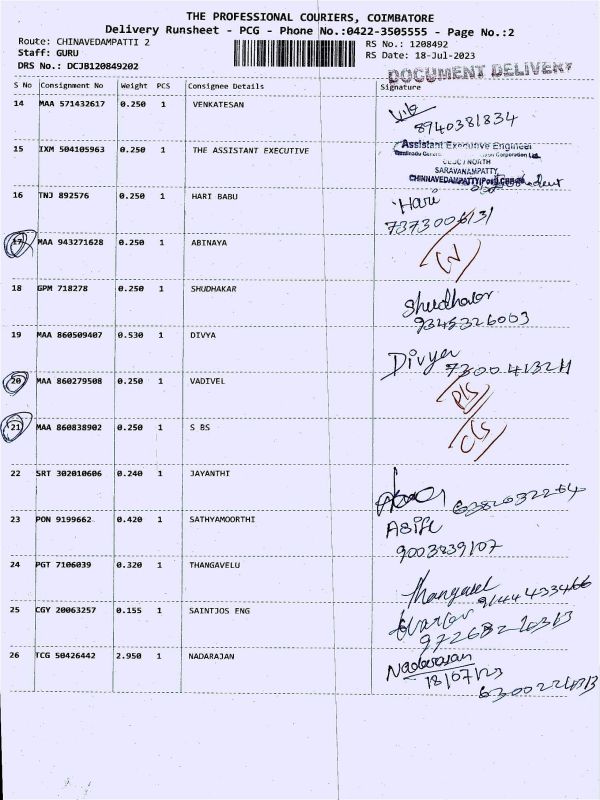 THE PROFESSIONAL COURIERS, COIMBATORE
Delivery Runsheet - PCG - Phone No.:0422-3505555 - Page No.:2
Route: CHINAVEDAMPATTI 2 RS No.: 1208492
Staff: GURU RS Date: 18-Jul-2023
DRS No.: DCJB120849202
DOCUMENT DELIVERY
S No Consignment No Weight PCS Consignee Details Signature
14 MAA 571432617 0.250 1 VENKATESAN
8940381834
15 IXM 504105963 0.250 1 THE ASSISTANT EXECUTIVE
Assistant Executive Engineer
Corporation Ltd.
NORTH
SARAVANAMPATTY
CHINNAVEDAMPATTY(Post)
16 TNJ 892576 0.250 1 HARI BABU
Hari
7373006131
17 MAA 943271628 0.250 1 ABINAYA
18 GPM 718278 0.250 1 SHUDHAKAR
Shudhakar
9345326003
19 MAA 860509407 0.530 1 DIVYA
Divya
20 MAA 860279508 0.250 1 VADIVEL
21 MAA 860838902 0.250 1 S BS
22 SRT 302010606 0.240 1 JAYANTHI
23 PON 9199662 0.420 1 SATHYAMOORTHI
9003839107
24 PGT 7106039 0.320 1 THANGAVELU
Thangavel
25 CGY 20063257 0.155 1 SAINTJOS ENG
26 TCG 50426442 2.950 1 NADARAJAN
Nadarasan
18/07/23